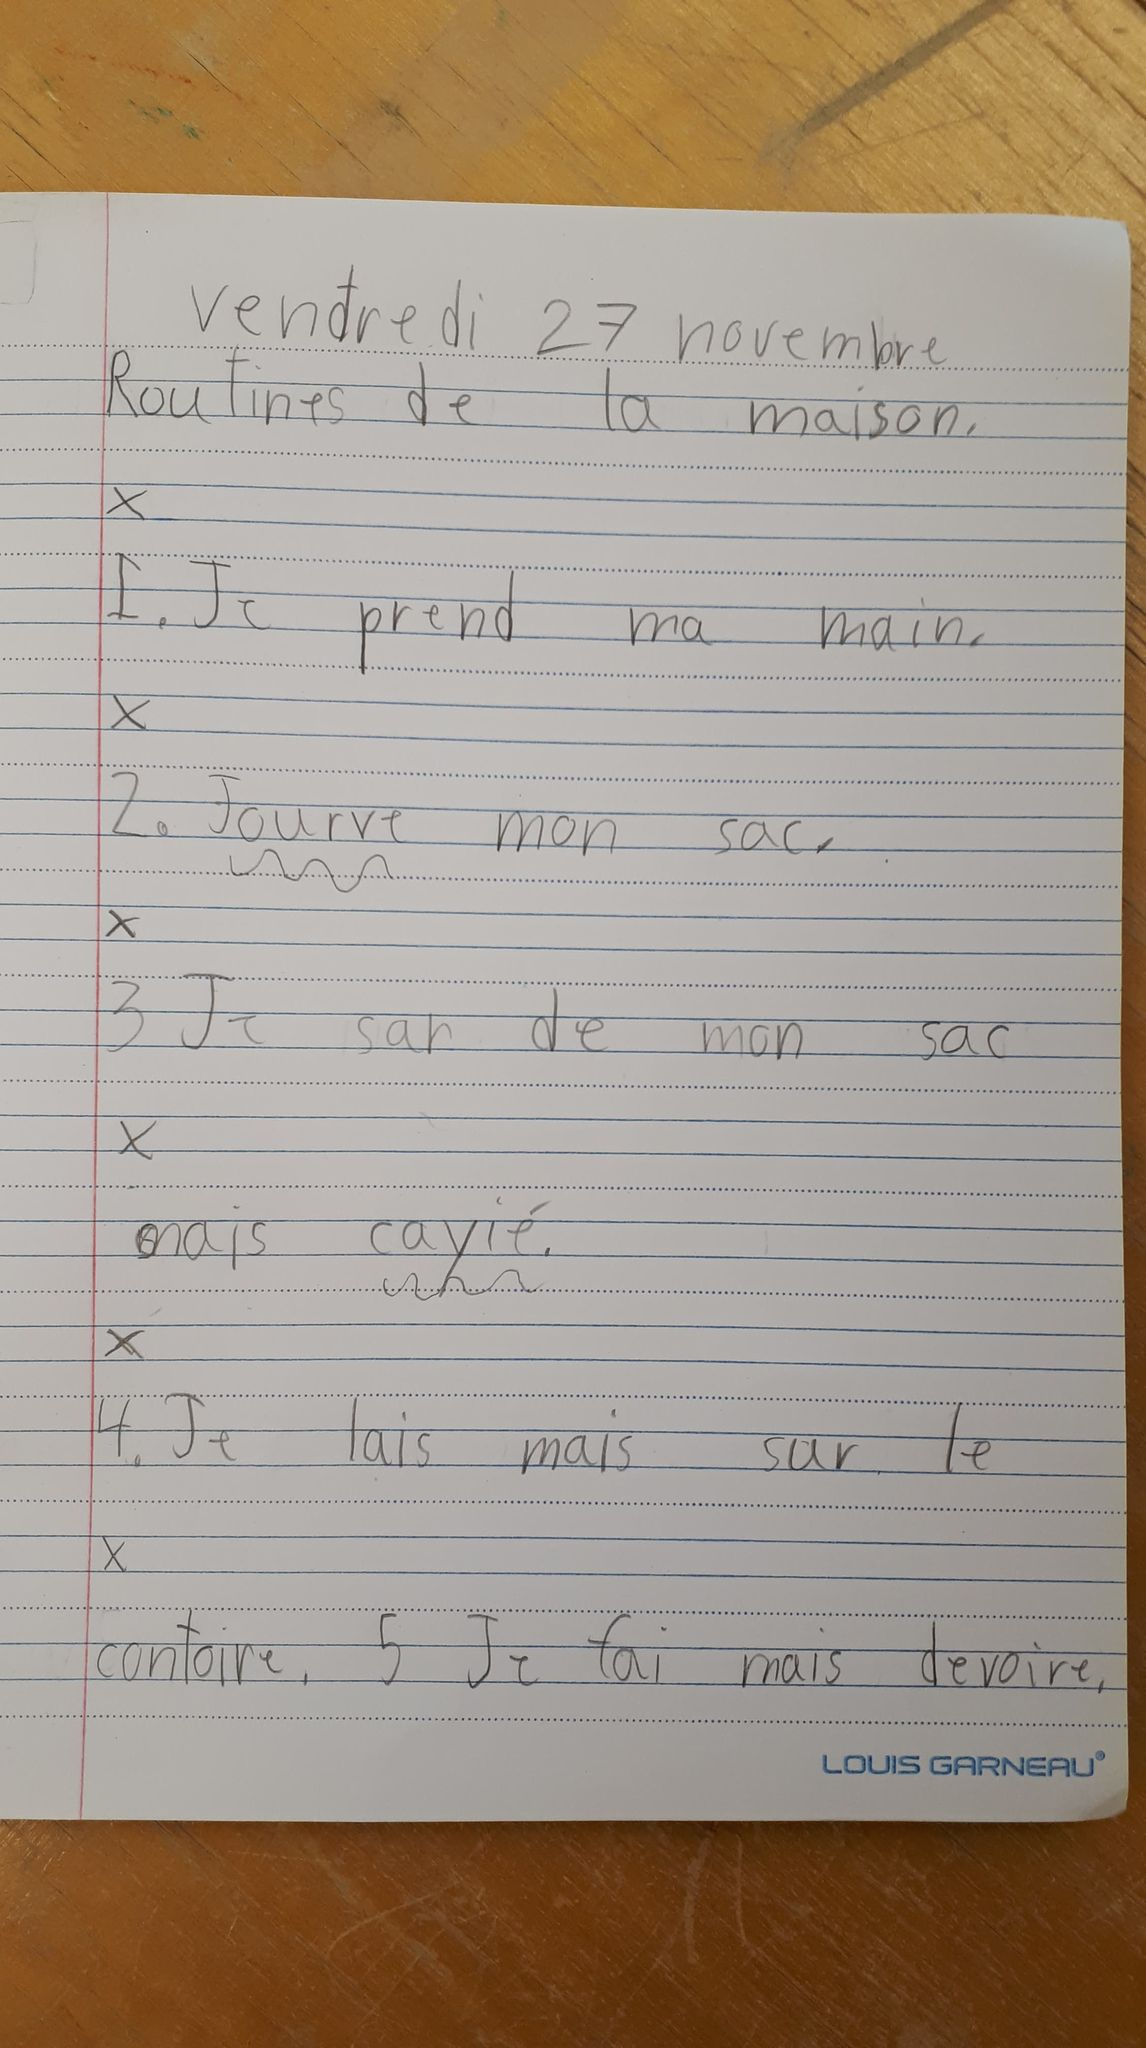 vendredi 27 novembre
Routines de la maison.
x
1. Je prend ma main.
x
2. Jourve mon sac.
x
3 Je sar de mon sac
x
mais cayié.
x
4. Je lais mais sur le
x
contoire. 5 Je fai mais devoire.
LOUIS GARNEAU®